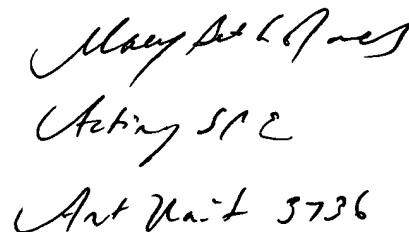 Mary Beth Jones
Acting SPE
Art Unit 3736